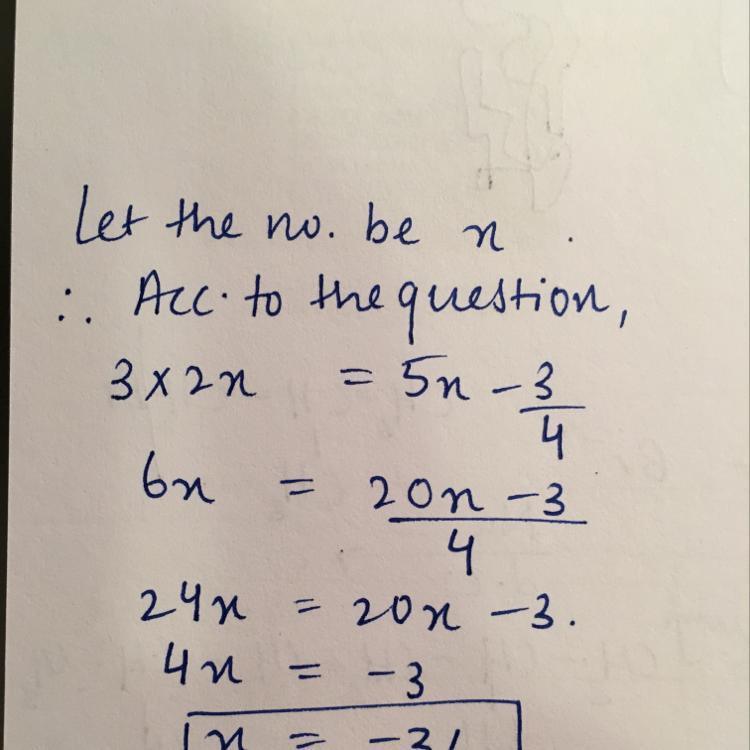 Let the no. be x.
∴ Acc. to the question,
3 × 2x = 5x - 3/4
6x = 20x - 3/4
24x = 20x - 3.
4x = -3
x = -3/